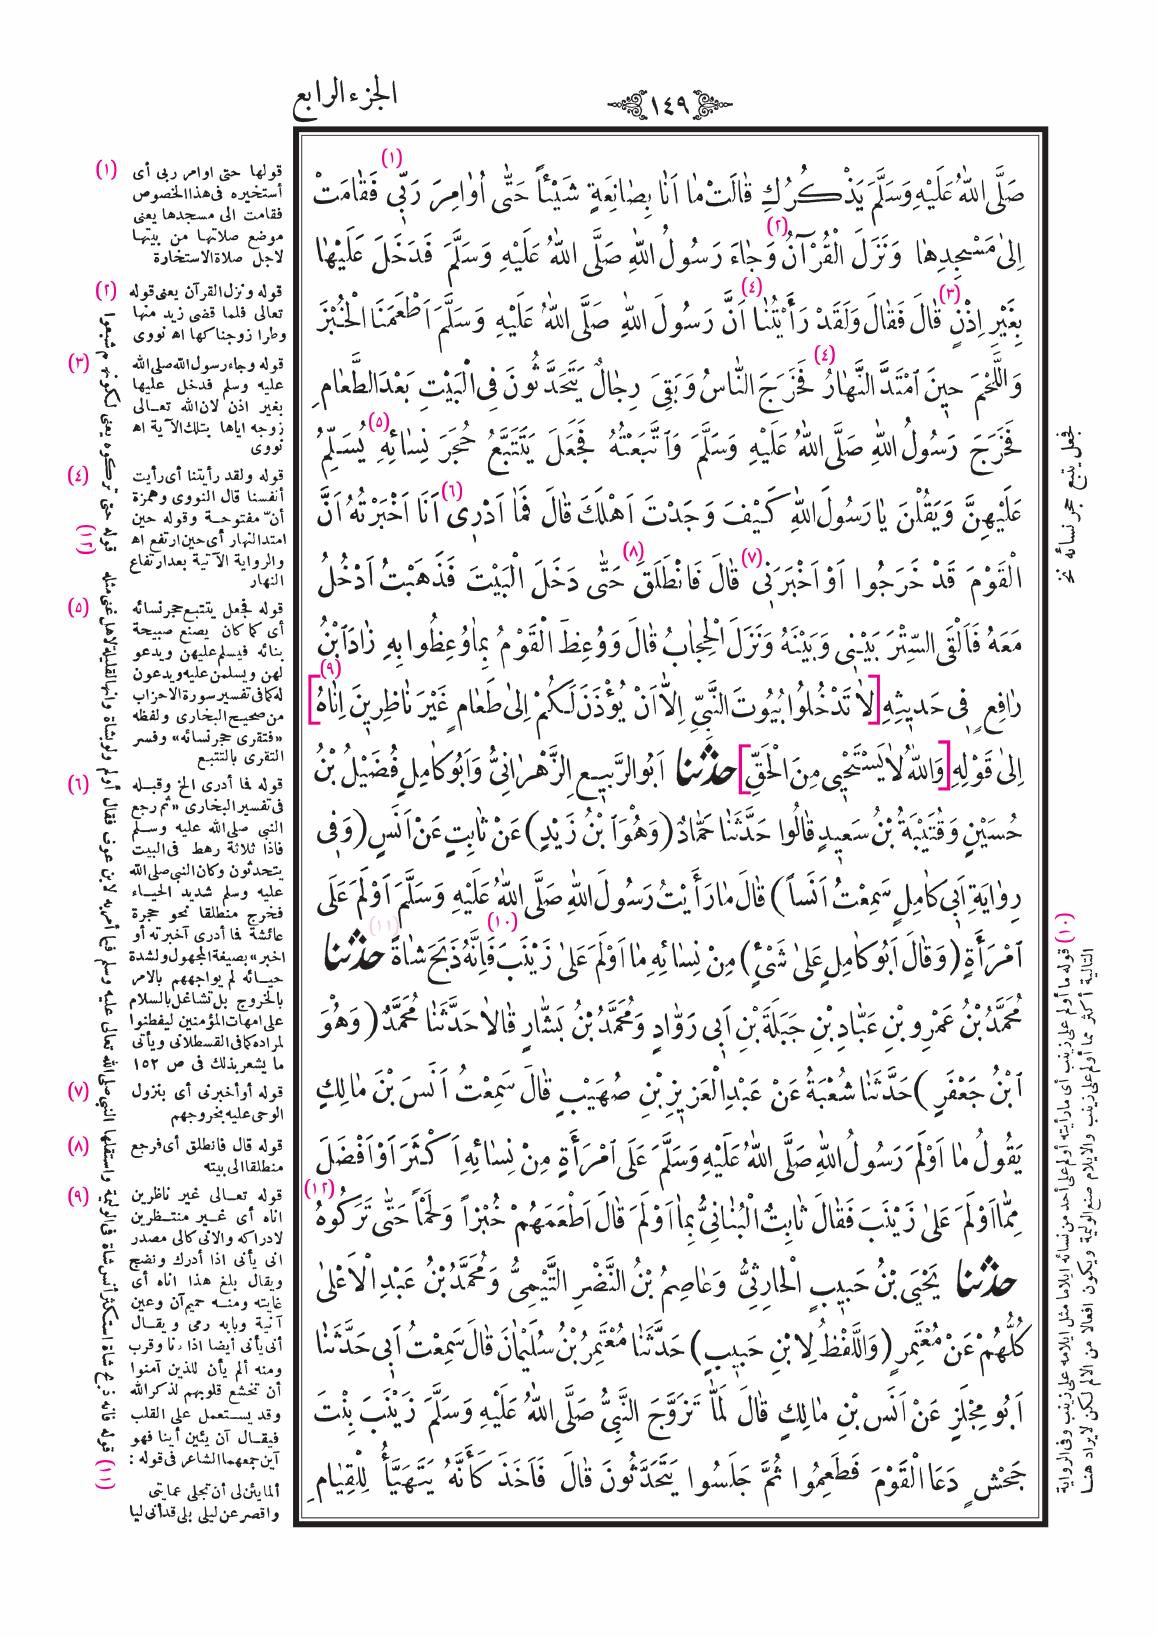 الجزء الرابع
١٤٩
صَلَّى اللهُ عَلَيْهِ وَسَلَّمَ يَذْكُرُكِ قَالَتْ مَا اَنَا بِصَانِعَةٍ شَيْئاً حَتّٰى اُوَامِرَ رَبِّى (١) فَقَامَتْ
اِلىٰ مَسْجِدِهَا وَنَزَلَ الْقُرْآنُ (٢) وَجَاءَ رَسُولُ اللهِ صَلَّى اللهُ عَلَيْهِ وَسَلَّمَ فَدَخَلَ عَلَيْهَا
بِغَيْرِ اِذْنٍ (٣) قَالَ فَقَالَ وَلَقَدْ رَأَيْتُنَا (٤) اَنَّ رَسُولَ اللهِ صَلَّى اللهُ عَلَيْهِ وَسَلَّمَ اَطْعَمَنَا الْخُبْزَ
وَاللَّحْمَ حِينَ امْتَدَّ النَّهَارُ (٤) فَخَرَجَ النَّاسُ وَبَقِىَ رِجَالٌ يَتَحَدَّثُونَ فِى الْبَيْتِ بَعْدَ الطَّعَامِ
فَخَرَجَ رَسُولُ اللهِ صَلَّى اللهُ عَلَيْهِ وَسَلَّمَ وَاتَّبَعْتُهُ فَجَعَلَ يَتَتَبَّعُ حُجَرَ نِسَائِهِ (٥) يُسَلِّمُ
عَلَيْهِنَّ وَيَقُلْنَ يَا رَسُولَ اللهِ كَيْفَ وَجَدْتَ اَهْلَكَ قَالَ فَمَا اَدْرِى (٦) اَنَا اَخْبَرْتُهُ اَنَّ
الْقَوْمَ قَدْ خَرَجُوا اَوْ اَخْبَرَنِى (٧) قَالَ فَانْطَلَقَ (٨) حَتّٰى دَخَلَ الْبَيْتَ فَذَهَبْتُ اَدْخُلُ
مَعَهُ فَاَلْقَى السِّتْرَ بَيْنِى وَبَيْنَهُ وَنَزَلَ الْحِجَابُ قَالَ وَوُعِظَ الْقَوْمُ بِمَا وُعِظُوا بِهِ زَادَ ابْنُ
رَافِعٍ فِى حَدِيثِهِ [لَا تَدْخُلُوا بُيُوتَ النَّبِىِّ اِلَّا اَنْ يُؤْذَنَ لَكُمْ اِلىٰ طَعَامٍ غَيْرَ نَاظِرِينَ اِنَاهُ (٩)]
اِلىٰ قَوْلِهِ [وَاللهُ لَا يَسْتَحْيِى مِنَ الْحَقِّ] حَدَّثَنَا اَبُو الرَّبِيعِ الزَّهْرَانِىُّ وَاَبُو كَامِلٍ فُضَيْلُ بْنُ
حُسَيْنٍ وَقُتَيْبَةُ بْنُ سَعِيدٍ قَالُوا حَدَّثَنَا حَمَّادٌ (وَهُوَ ابْنُ زَيْدٍ) عَنْ ثَابِتٍ عَنْ اَنَسٍ (وَفِى
رِوَايَةِ اَبِى كَامِلٍ سَمِعْتُ اَنَساً) قَالَ مَا رَأَيْتُ رَسُولَ اللهِ صَلَّى اللهُ عَلَيْهِ وَسَلَّمَ اَوْلَمَ عَلَى
امْرَأَةٍ (وَقَالَ اَبُو كَامِلٍ عَلىٰ شَىْءٍ) مِنْ نِسَائِهِ مَا اَوْلَمَ عَلىٰ زَيْنَبَ (١٠) فَاِنَّهُ ذَبَحَ شَاةً (١١) حَدَّثَنَا
مُحَمَّدُ بْنُ عَمْرِو بْنِ عَبَّادِ بْنِ جَبَلَةَ بْنِ اَبِى رَوَّادٍ وَمُحَمَّدُ بْنُ بَشَّارٍ قَالَا حَدَّثَنَا مُحَمَّدٌ (وَهُوَ
ابْنُ جَعْفَرٍ) حَدَّثَنَا شُعْبَةُ عَنْ عَبْدِ الْعَزِيزِ بْنِ صُهَيْبٍ قَالَ سَمِعْتُ اَنَسَ بْنَ مَالِكٍ
يَقُولُ مَا اَوْلَمَ رَسُولُ اللهِ صَلَّى اللهُ عَلَيْهِ وَسَلَّمَ عَلَى امْرَأَةٍ مِنْ نِسَائِهِ اَكْثَرَ اَوْ اَفْضَلَ
مِمَّا اَوْلَمَ عَلىٰ زَيْنَبَ فَقَالَ ثَابِتٌ الْبُنَانِىُّ بِمَا اَوْلَمَ قَالَ اَطْعَمَهُمْ خُبْزاً وَلَحْماً حَتّٰى تَرَكُوهُ (١٢)
حَدَّثَنَا يَحْيَى بْنُ حَبِيبٍ الْحَارِثِىُّ وَعَاصِمُ بْنُ النَّضْرِ التَّيْمِىُّ وَمُحَمَّدُ بْنُ عَبْدِ الْاَعْلىٰ
كُلُّهُمْ عَنْ مُعْتَمِرٍ (وَاللَّفْظُ لِابْنِ حَبِيبٍ) حَدَّثَنَا مُعْتَمِرُ بْنُ سُلَيْمَانَ قَالَ سَمِعْتُ اَبِى حَدَّثَنَا
اَبُو مِجْلَزٍ عَنْ اَنَسِ بْنِ مَالِكٍ قَالَ لَمَّا تَزَوَّجَ النَّبِىُّ صَلَّى اللهُ عَلَيْهِ وَسَلَّمَ زَيْنَبَ بِنْتَ
جَحْشٍ دَعَا الْقَوْمَ فَطَعِمُوا ثُمَّ جَلَسُوا يَتَحَدَّثُونَ قَالَ فَاَخَذَ كَاَنَّهُ يَتَهَيَّأُ لِلْقِيَامِ
(١) قولها حتى اوامر ربى أى
أستخيره فى هذا الخصوص
فقامت الى مسجدها يعنى
موضع صلاتها من بيتها
لاجل صلاة الاستخارة
(٢) قوله ونزل القرآن يعنى قوله
تعالى فلما قضى زيد منها
وطرا زوجناكها اه نووى
(٣) قوله وجاء رسول الله صلى الله
عليه وسلم فدخل عليها
بغير اذن لان الله تعالى
زوجه اياها بتلك الآية اه
نووى
(٤) قوله ولقد رأيتنا أى رأيت
أنفسنا قال النووى وهمزة
أنّ مفتوحة وقوله حين
امتد النهار أى حين ارتفع اه
والرواية الآتية بعد ارتفاع
النهار
(٥) قوله فجعل يتتبع حجر نسائه
أى كما كان يصنع صبيحة
بنائه فيسلم عليهن ويدعو
لهن ويسلمن عليه ويدعون
له كما فى تفسير سورة الاحزاب
من صحيح البخارى ولفظه
«فتقرى حجر نسائه» وفسر
التقرى بالتتبع
(٦) قوله فما أدرى الخ وقبله
فى تفسير البخارى «ثم رجع
النبى صلى الله عليه وسلم
فاذا ثلاثة رهط فى البيت
يتحدثون وكان النبى صلى الله
عليه وسلم شديد الحياء
فخرج منطلقا نحو حجرة
عائشة فما أدرى آخبرته أو
اخبر» بصيغة المجهول ولشدة
حيائه لم يواجههم بالامر
بالخروج بل تشاغل بالسلام
على امهات المؤمنين ليفطنوا
لمراده كما فى القسطلانى ويأتى
ما يشعر بذلك فى ص ١٥٢
(٧) قوله أو أخبرنى أى بنزول
الوحى عليه بخروجهم
(٨) قوله قال فانطلق أى فرجع
منطلقا الى بيته
(٩) قوله تعالى غير ناظرين
اناه أى غير منتظرين
لادراكه والانى كالى مصدر
انى يأنى اذا أدرك ونضج
ويقال بلغ هذا اناه أى
غايته ومنه حميم آن وعين
آنية وبابه رمى ويقال
أنى يأنى أيضا اذا دنا وقرب
ومنه ألم يأن للذين آمنوا
أن تخشع قلوبهم لذكر الله
وقد يستعمل على القلب
فيقال آن يئين أينا فهو
آين جمعهما الشاعر فى قوله :
ألما يئن لى أن تجلى عمايتى
واقصر عن ليلى بلى قد أنى ليا
(١١) قوله فانه ذبح شاة استكثر أنس شاة فى الوليمة واستقلها النبى صلى الله تعالى عليه وسلم فيما أمر به لابن عوف فقال أولم ولو بشاة وانها لقليلة لاهل غنى مثله (١٢) قوله حتى تركوه يعنى لكونهم شبعوا
فجعل يتبع حجر نسائه نخ
(١٠) قوله ما أولم على زينب أى ما رأيته أولم على أحد من نسائه ايلاما مثل ايلامه على زينب وفى الرواية
التالية أكثر مما أولم على زينب والايلام صنع الوليمة ويكون افعالا من الالم لكن لا يراد هنا